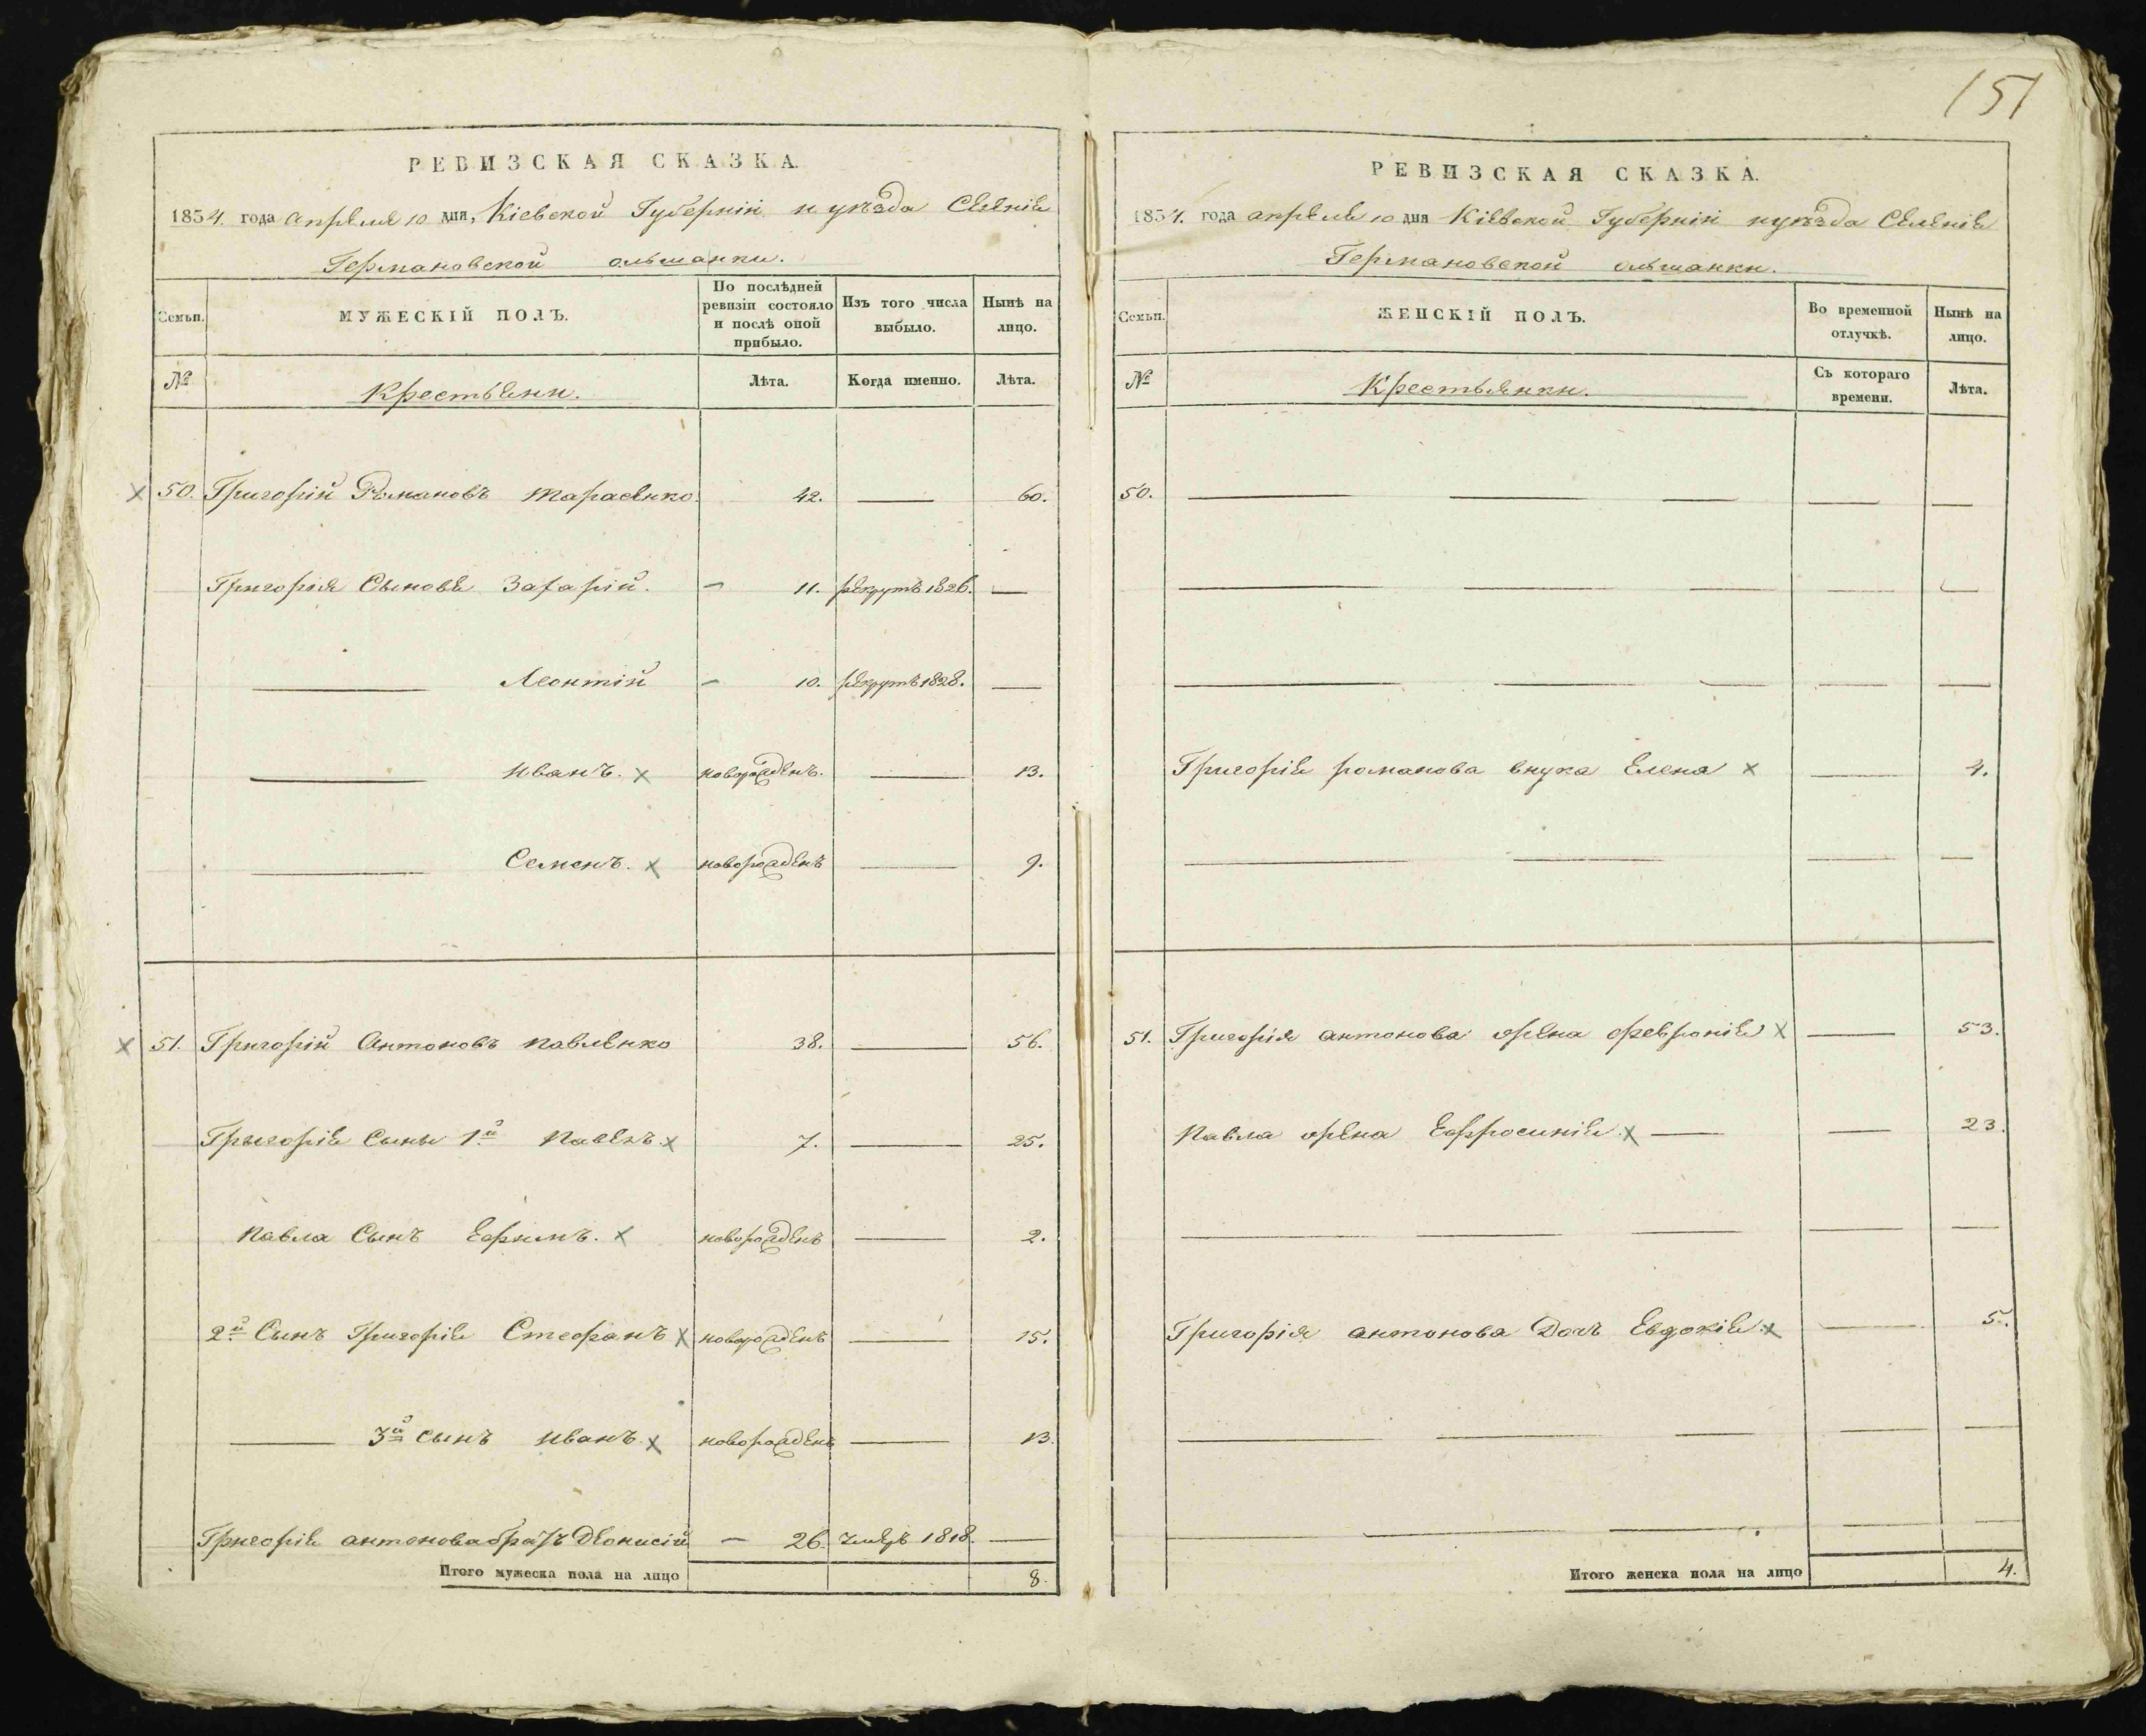 151
РЕВИЗСКАЯ СКАЗКА.
1834 года апреля 10 дня, Кіевской Губерніи и уѣзда Селенія
Германовской ольшанки.
Семьи.
МУЖЕСКІЙ ПОЛЪ.
По послѣдней ревизіи состояло и послѣ оной прибыло.
Изъ того числа выбыло.
Нынѣ на лицо.
№
Крестьяни.
Лѣта.
Когда именно.
Лѣта.
50. Григорій Романовъ Тарасенко. 42. — 60.
Григорія Сыновя Захарій. — 11. рекрутъ 1826. —
— Леонтій — 10. рекрутъ 1828. —
— Иванъ. × новорожденъ. — 13.
— Семенъ. × новорожденъ — 9.
51. Григорій Антоновъ Павленко 38. — 56.
Григорія Сыны 1й Павелъ. × 7. — 25.
Павла Сынъ Ефимъ. × новорожденъ — 2.
2й Сынъ Григорія Стефанъ × новорожденъ — 15.
— 3й сынъ Иванъ. × новорожденъ — 13.
Григорія антонова братъ Деонисій — 26. умеръ 1818. —
Итого мужеска пола на лицо 8.
РЕВИЗСКАЯ СКАЗКА.
1834. года апреля 10 дня Кіевской Губерніи и уѣзда Селенія
Германовской ольшанки.
Семьи.
ЖЕНСКІЙ ПОЛЪ.
Во временной отлучкѣ.
Нынѣ на лицо.
№
Крестьянки.
Съ котораго времени.
Лѣта.
50. — — — —
Григорія романова внука Елена × — 4.
51. Григорія антонова жена февронія × — 53.
Павла жена Ефросинія. × — — 23.
Григорія антонова Дочъ Евдокія. × — 5.
Итого женска пола на лицо 4.